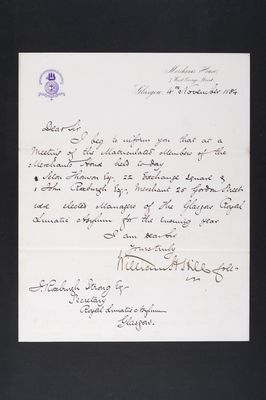 Merchants House,
7 West George Street,
Glasgow, 4th November 1884
Dear Sir
I beg to inform you that at a
Meeting of the Matriculated Members of the
Merchants House held to-day
Esq. 22 Exchange Square &
John Roxburgh Esq., Merchant 25 Gordon Street
were elected Managers of the Glasgow Royal
Lunatic Asylum for the ensuing year
I am Dear Sir
Yours truly
William H Hill
J. Roxburgh Strang Esq.
Secretary
Royal Lunatic Asylum
Glasgow.